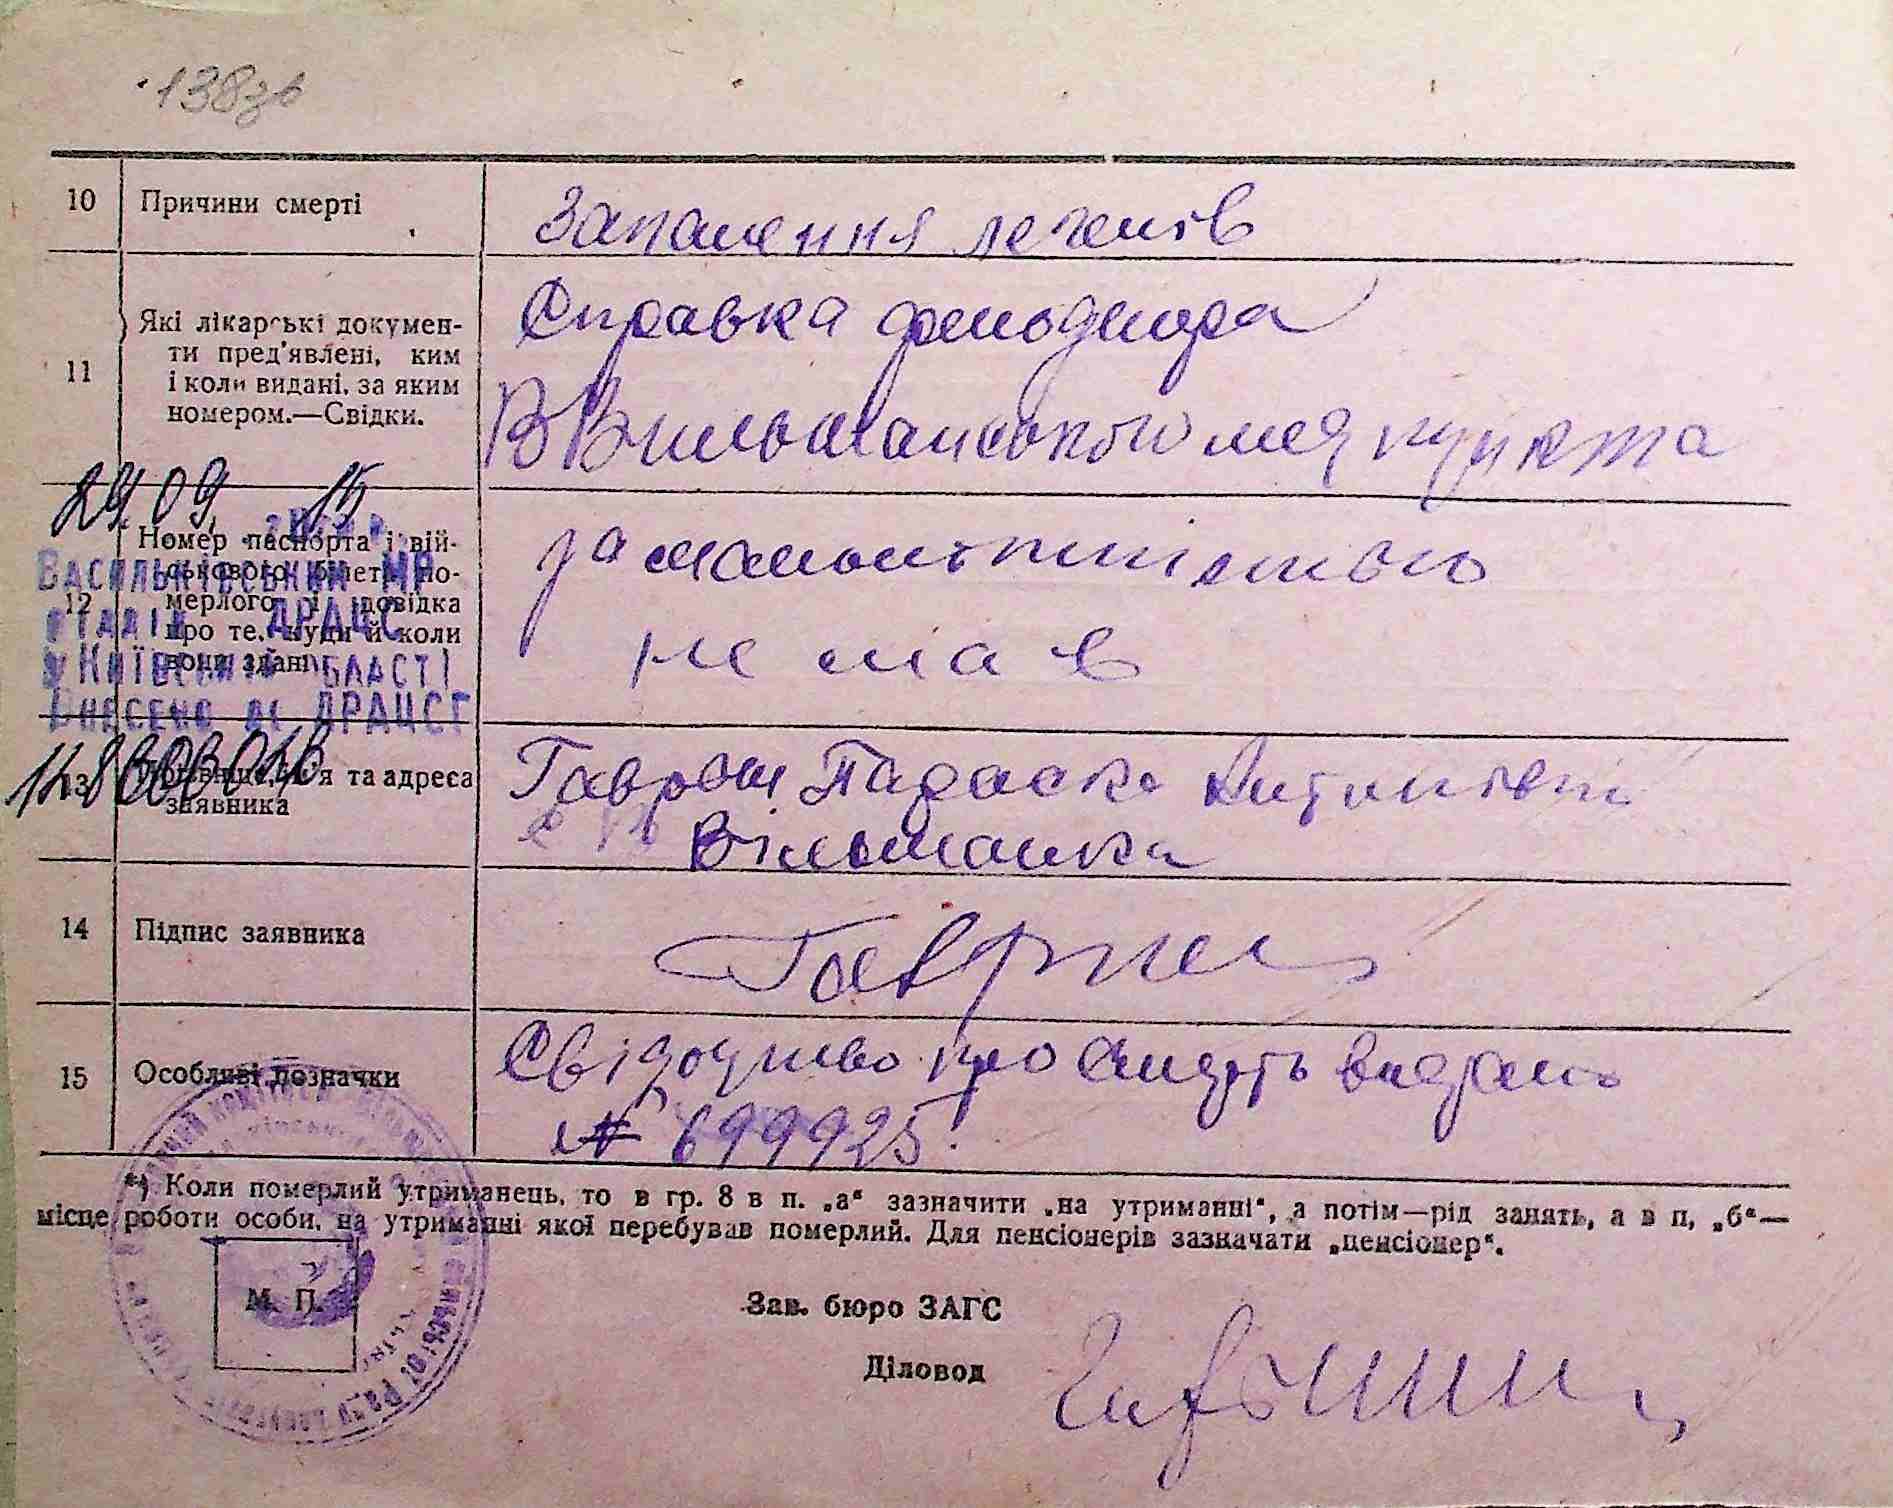 138зв
10 Причини смерті
Запалення легенів
11 Які лікарські докумен-
ти пред'явлені, ким
і коли видані, за яким
номером.—Свідки.
Справка фельдшера
В Вильшанського медпункта
29.09. 15
Номер паспорта і вій-
ськового білета по-
12 мерлого і довідка
про те, куди й коли
вони здані
за малолітністю
не мав
Васильківський МР
відділ ДРАЦС
у Київській області
Внесено до ДРАЦСГ
13 Прізвище, ім'я та адреса
заявника
Гавриш Параска
с Вільшанка
14 Підпис заявника
Гавриш
15 Особливі позначки
Свідоцтво про смерть видано
№ 699925.
*) Коли померлий утриманець, то в гр. 8 в п. „а“ зазначити „на утриманні“, а потім—рід занять, а в п. „б“—
місце роботи особи, на утриманні якої перебував померлий. Для пенсіонерів зазначати „пенсіонер“.
М. П.
Зав. бюро ЗАГС
Діловод